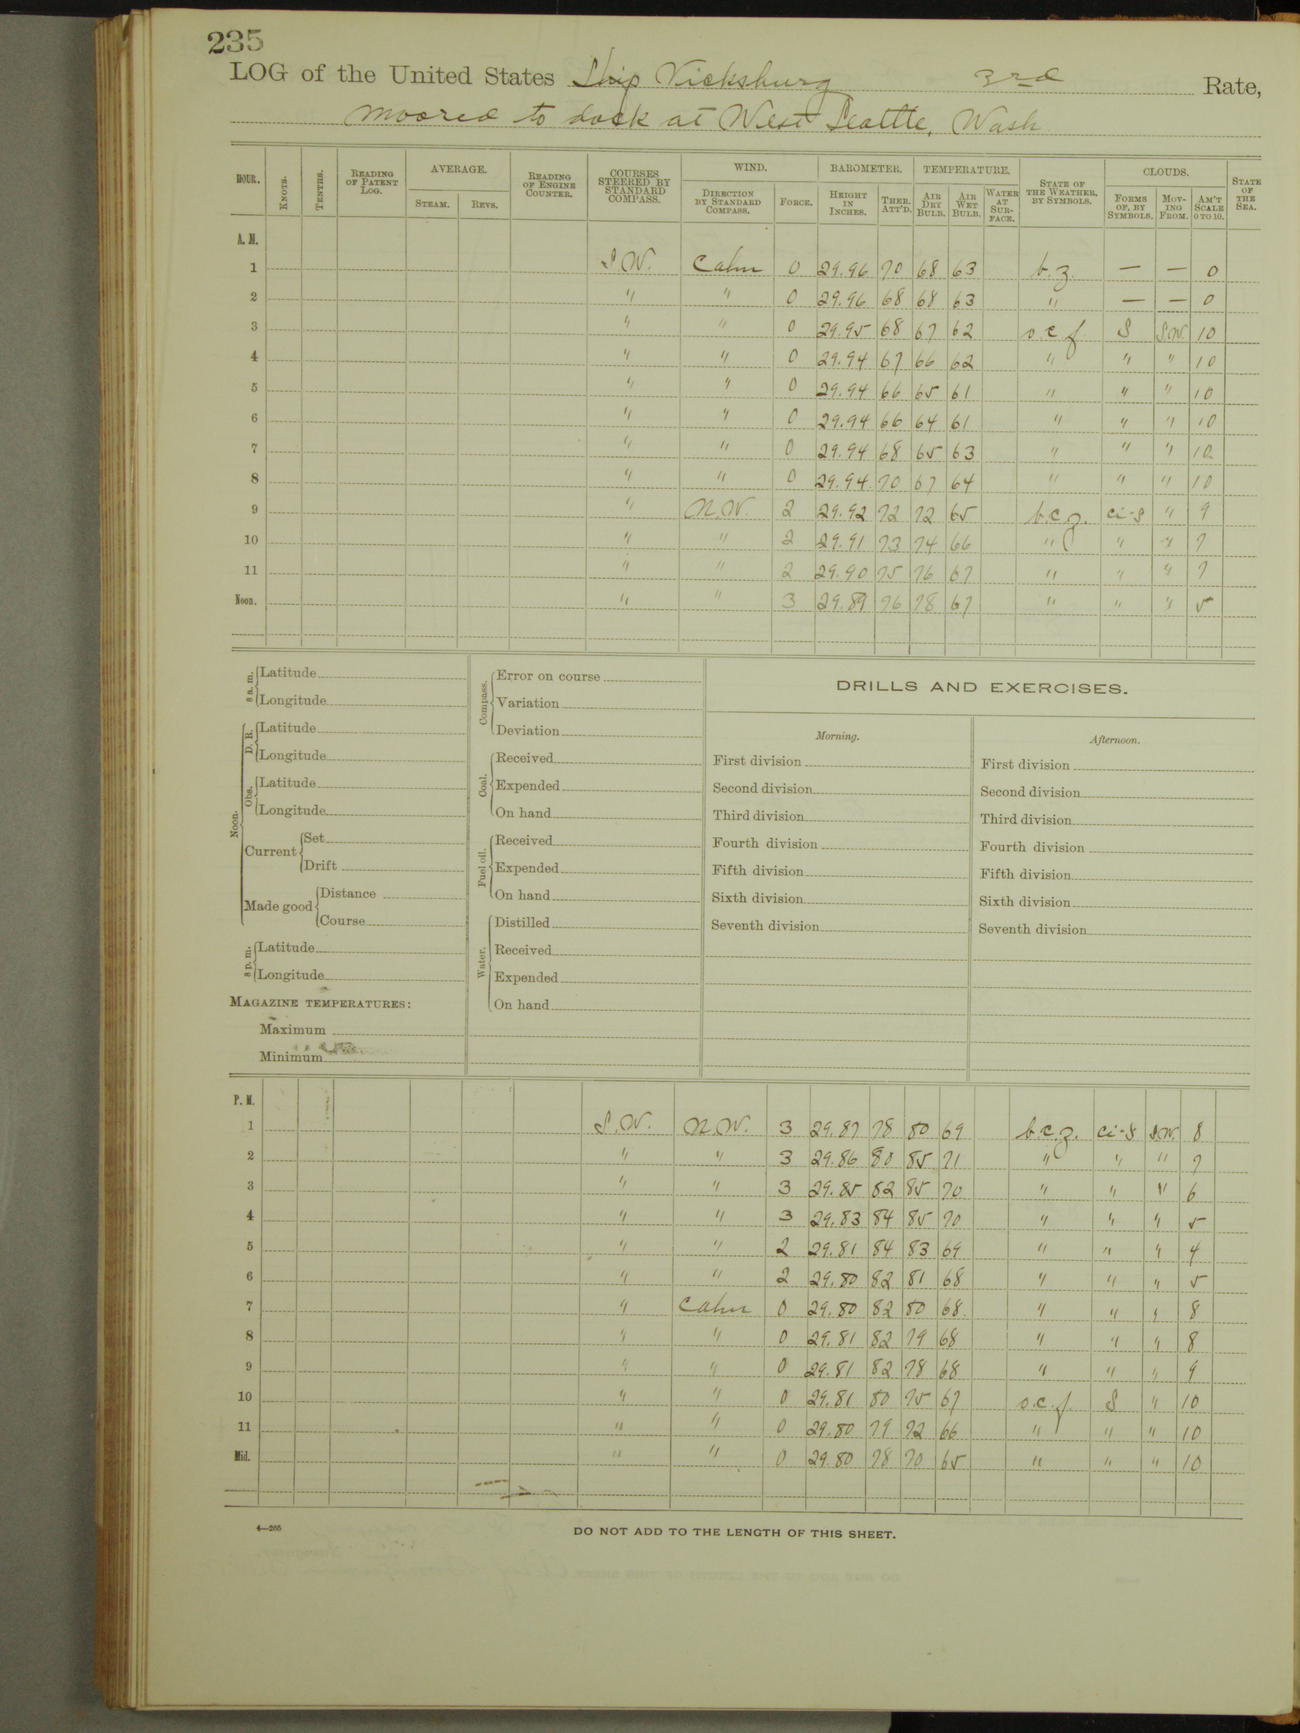 235
LOG of the United States Ship Vicksburg 3rd Rate,
moored to dock at West Seattle, Wash.
HOUR. KNOTS. TENTHS. READING OF PATENT LOG. AVERAGE. STEAM. REVS. READING OF ENGINE COUNTER. COURSES STEERED BY STANDARD COMPASS. WIND. DIRECTION BY STANDARD COMPASS. FORCE. BAROMETER. HEIGHT IN INCHES. THER. ATT'D. TEMPERATURE. AIR DRY BULB. AIR WET BULB. WATER AT SURFACE. STATE OF THE WEATHER, BY SYMBOLS. CLOUDS. FORMS OF, BY SYMBOLS. MOVING FROM. AM'T SCALE 0 TO 10. STATE OF THE SEA.
A. M.
1 S.W. Calm 0 29.96 70 68 63 b.z. — — 0
2 " " 0 29.96 68 68 63 " — — 0
3 " " 0 29.95 68 67 62 o.c.f S S.W. 10
4 " " 0 29.94 67 66 62 " " " 10
5 " " 0 29.94 66 65 61 " " " 10
6 " " 0 29.94 66 64 61 " " " 10
7 " " 0 29.94 68 65 63 " " " 10
8 " " 0 29.94 70 67 64 " " " 10
9 " N.W. 2 29.92 72 72 65 b.c.z. ci-s " 9
10 " " 2 29.91 73 74 66 " " " 7
11 " " 2 29.90 75 76 67 " " " 7
Noon. " " 3 29.89 76 78 67 " " " 5
8 a. m. Latitude
Longitude
Noon. D. R. Latitude
Longitude
Obs. Latitude
Longitude
Current Set
Drift
Made good Distance
Course
8 p. m. Latitude
Longitude
MAGAZINE TEMPERATURES:
Maximum
Minimum
Compass. Error on course
Variation
Deviation
Coal. Received
Expended
On hand
Fuel oil. Received
Expended
On hand
Water. Distilled
Received
Expended
On hand
DRILLS AND EXERCISES.
Morning.
First division
Second division
Third division
Fourth division
Fifth division
Sixth division
Seventh division
Afternoon.
First division
Second division
Third division
Fourth division
Fifth division
Sixth division
Seventh division
P. M.
1 S.W. N.W. 3 29.87 78 80 69 b.c.z. ci-s S.W. 8
2 " " 3 29.86 80 85 71 " " " 7
3 " " 3 29.85 82 85 70 " " " 6
4 " " 3 29.83 84 85 70 " " " 5
5 " " 2 29.81 84 83 69 " " " 4
6 " " 2 29.80 82 81 68 " " " 5
7 " Calm 0 29.80 82 80 68. " " " 8
8 " " 0 29.81 82 79 68 " " " 8
9 " " 0 29.81 82 78 68 " " " 9
10 " " 0 29.81 80 75 67 o.c.f. S " 10
11 " " 0 29.80 79 72 66 " " " 10
Mid. " " 0 29.80 78 70 65 " " " 10
4—265
DO NOT ADD TO THE LENGTH OF THIS SHEET.